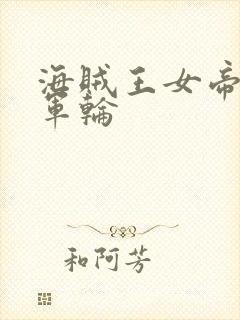 海賊王女帝
軍輪
和阿芳